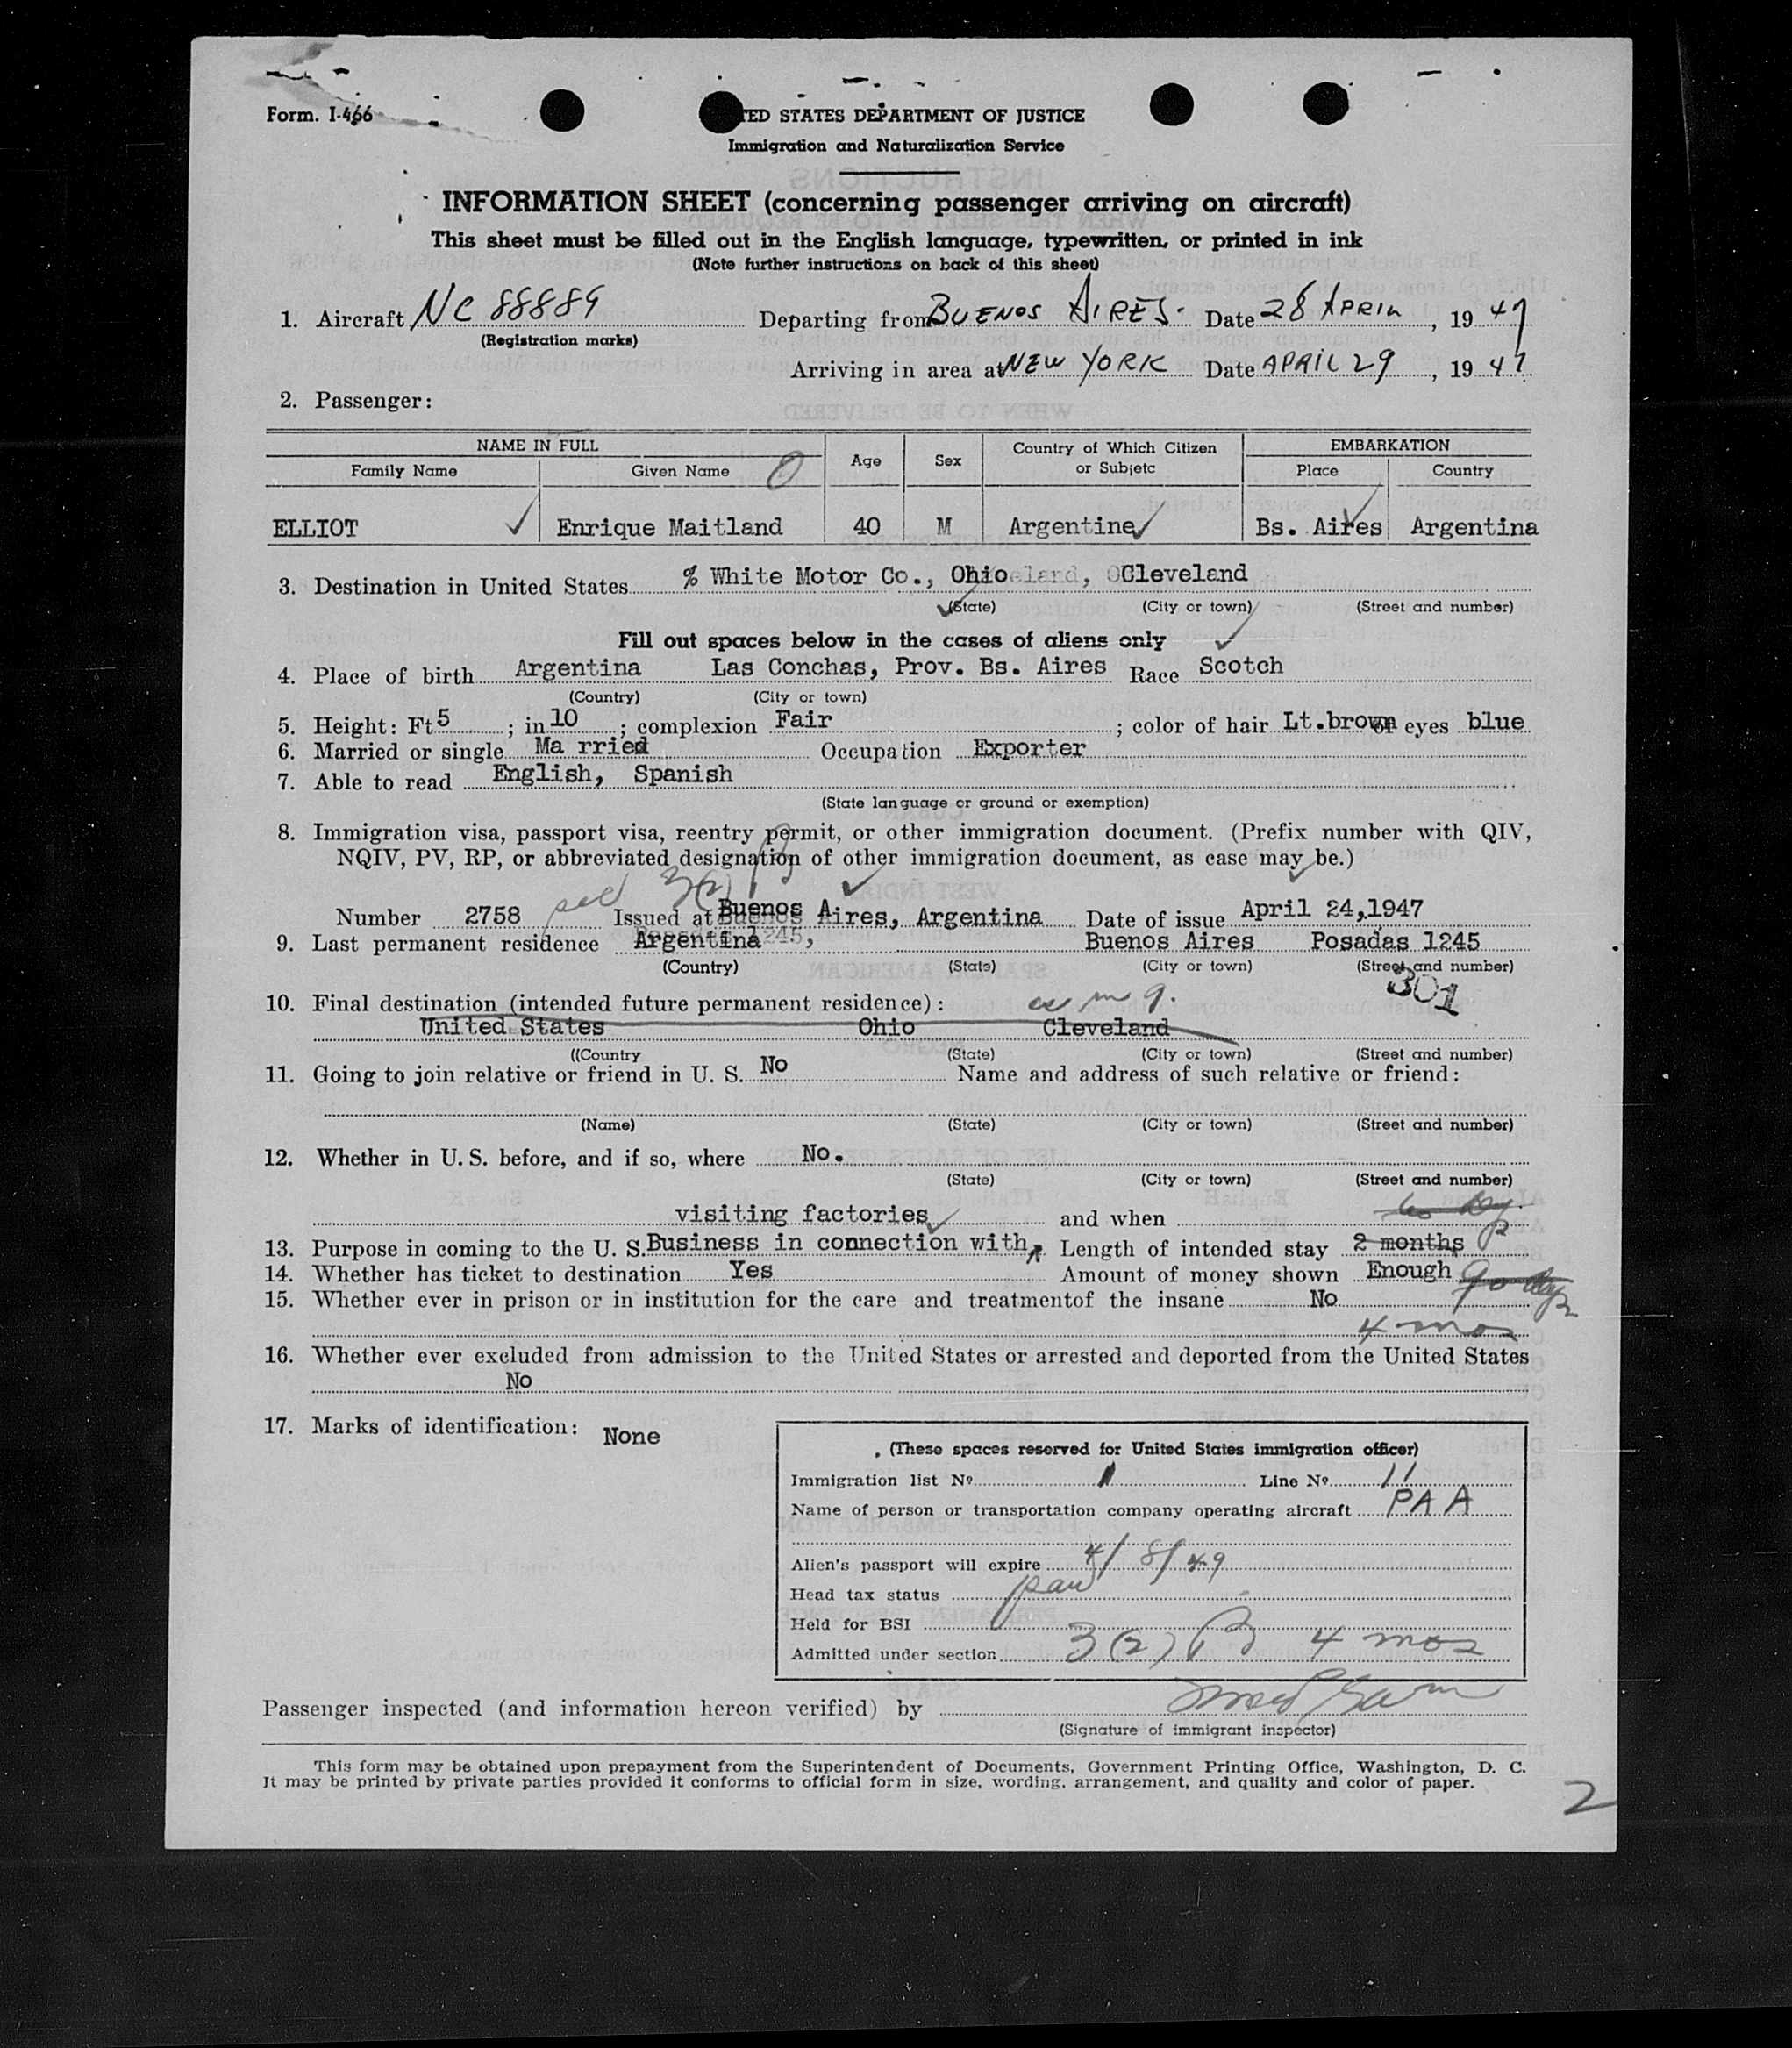 Form. I-466
TED STATES DEPARTMENT OF JUSTICE
Immigration and Naturalization Service
INFORMATION SHEET (concerning passenger arriving on aircraft)
This sheet must be filled out in the English language, typewritten, or printed in ink
(Note further instructions on back of this sheet)
1. Aircraft NC 88889 Departing from BUENOS AIRES. Date 28 APRIL, 19 47
(Registration marks)
Arriving in area at NEW YORK Date APRIL 29, 19 47
2. Passenger:
NAME IN FULL Age Sex Country of Which Citizen or Subjetc EMBARKATION
Family Name Given Name O Place Country
ELLIOT Enrique Maitland 40 M Argentine Bs. Aires Argentina
3. Destination in United States % White Motor Co., Ohio Cleveland
(State) (City or town) (Street and number)
Fill out spaces below in the cases of aliens only
4. Place of birth Argentina Las Conchas, Prov. Bs. Aires Race Scotch
(Country) (City or town)
5. Height: Ft 5 ; in 10 ; complexion Fair ; color of hair Lt.brown of eyes blue
6. Married or single Ma rried Occupation Exporter
7. Able to read English, Spanish
(State language or ground or exemption)
8. Immigration visa, passport visa, reentry permit, or other immigration document. (Prefix number with QIV,
NQIV, PV, RP, or abbreviated designation of other immigration document, as case may be.)
3(2) B
Number 2758 Issued at Buenos Aires, Argentina Date of issue April 24,.1947
9. Last permanent residence Argentina Buenos Aires Posadas 1245
(Country) (State) (City or town) (Street and number)
301
10. Final destination (intended future permanent residence):
United States Ohio Cleveland
((Country (State) (City or town) (Street and number)
11. Going to join relative or friend in U. S. No Name and address of such relative or friend:
(Name) (State) (City or town) (Street and number)
12. Whether in U. S. before, and if so, where No.
(State) (City or town) (Street and number)
visiting factories and when
13. Purpose in coming to the U. S. Business in connection with Length of intended stay 2 months
14. Whether has ticket to destination Yes Amount of money shown Enough 90 days
15. Whether ever in prison or in institution for the care and treatmentof the insane No
4 mos
16. Whether ever excluded from admission to the United States or arrested and deported from the United States
No
17. Marks of identification: None
(These spaces reserved for United States immigration officer)
Immigration list No 1 Line No 11
Name of person or transportation company operating aircraft PAA
Alien's passport will expire 4/8/49
Head tax status
Held for BSI
Admitted under section 3(2) B 4 mos
Passenger inspected (and information hereon verified) by
(Signature of immigrant inspector)
This form may be obtained upon prepayment from the Superintendent of Documents, Government Printing Office, Washington, D. C.
It may be printed by private parties provided it conforms to official form in size, wording, arrangement, and quality and color of paper.
2